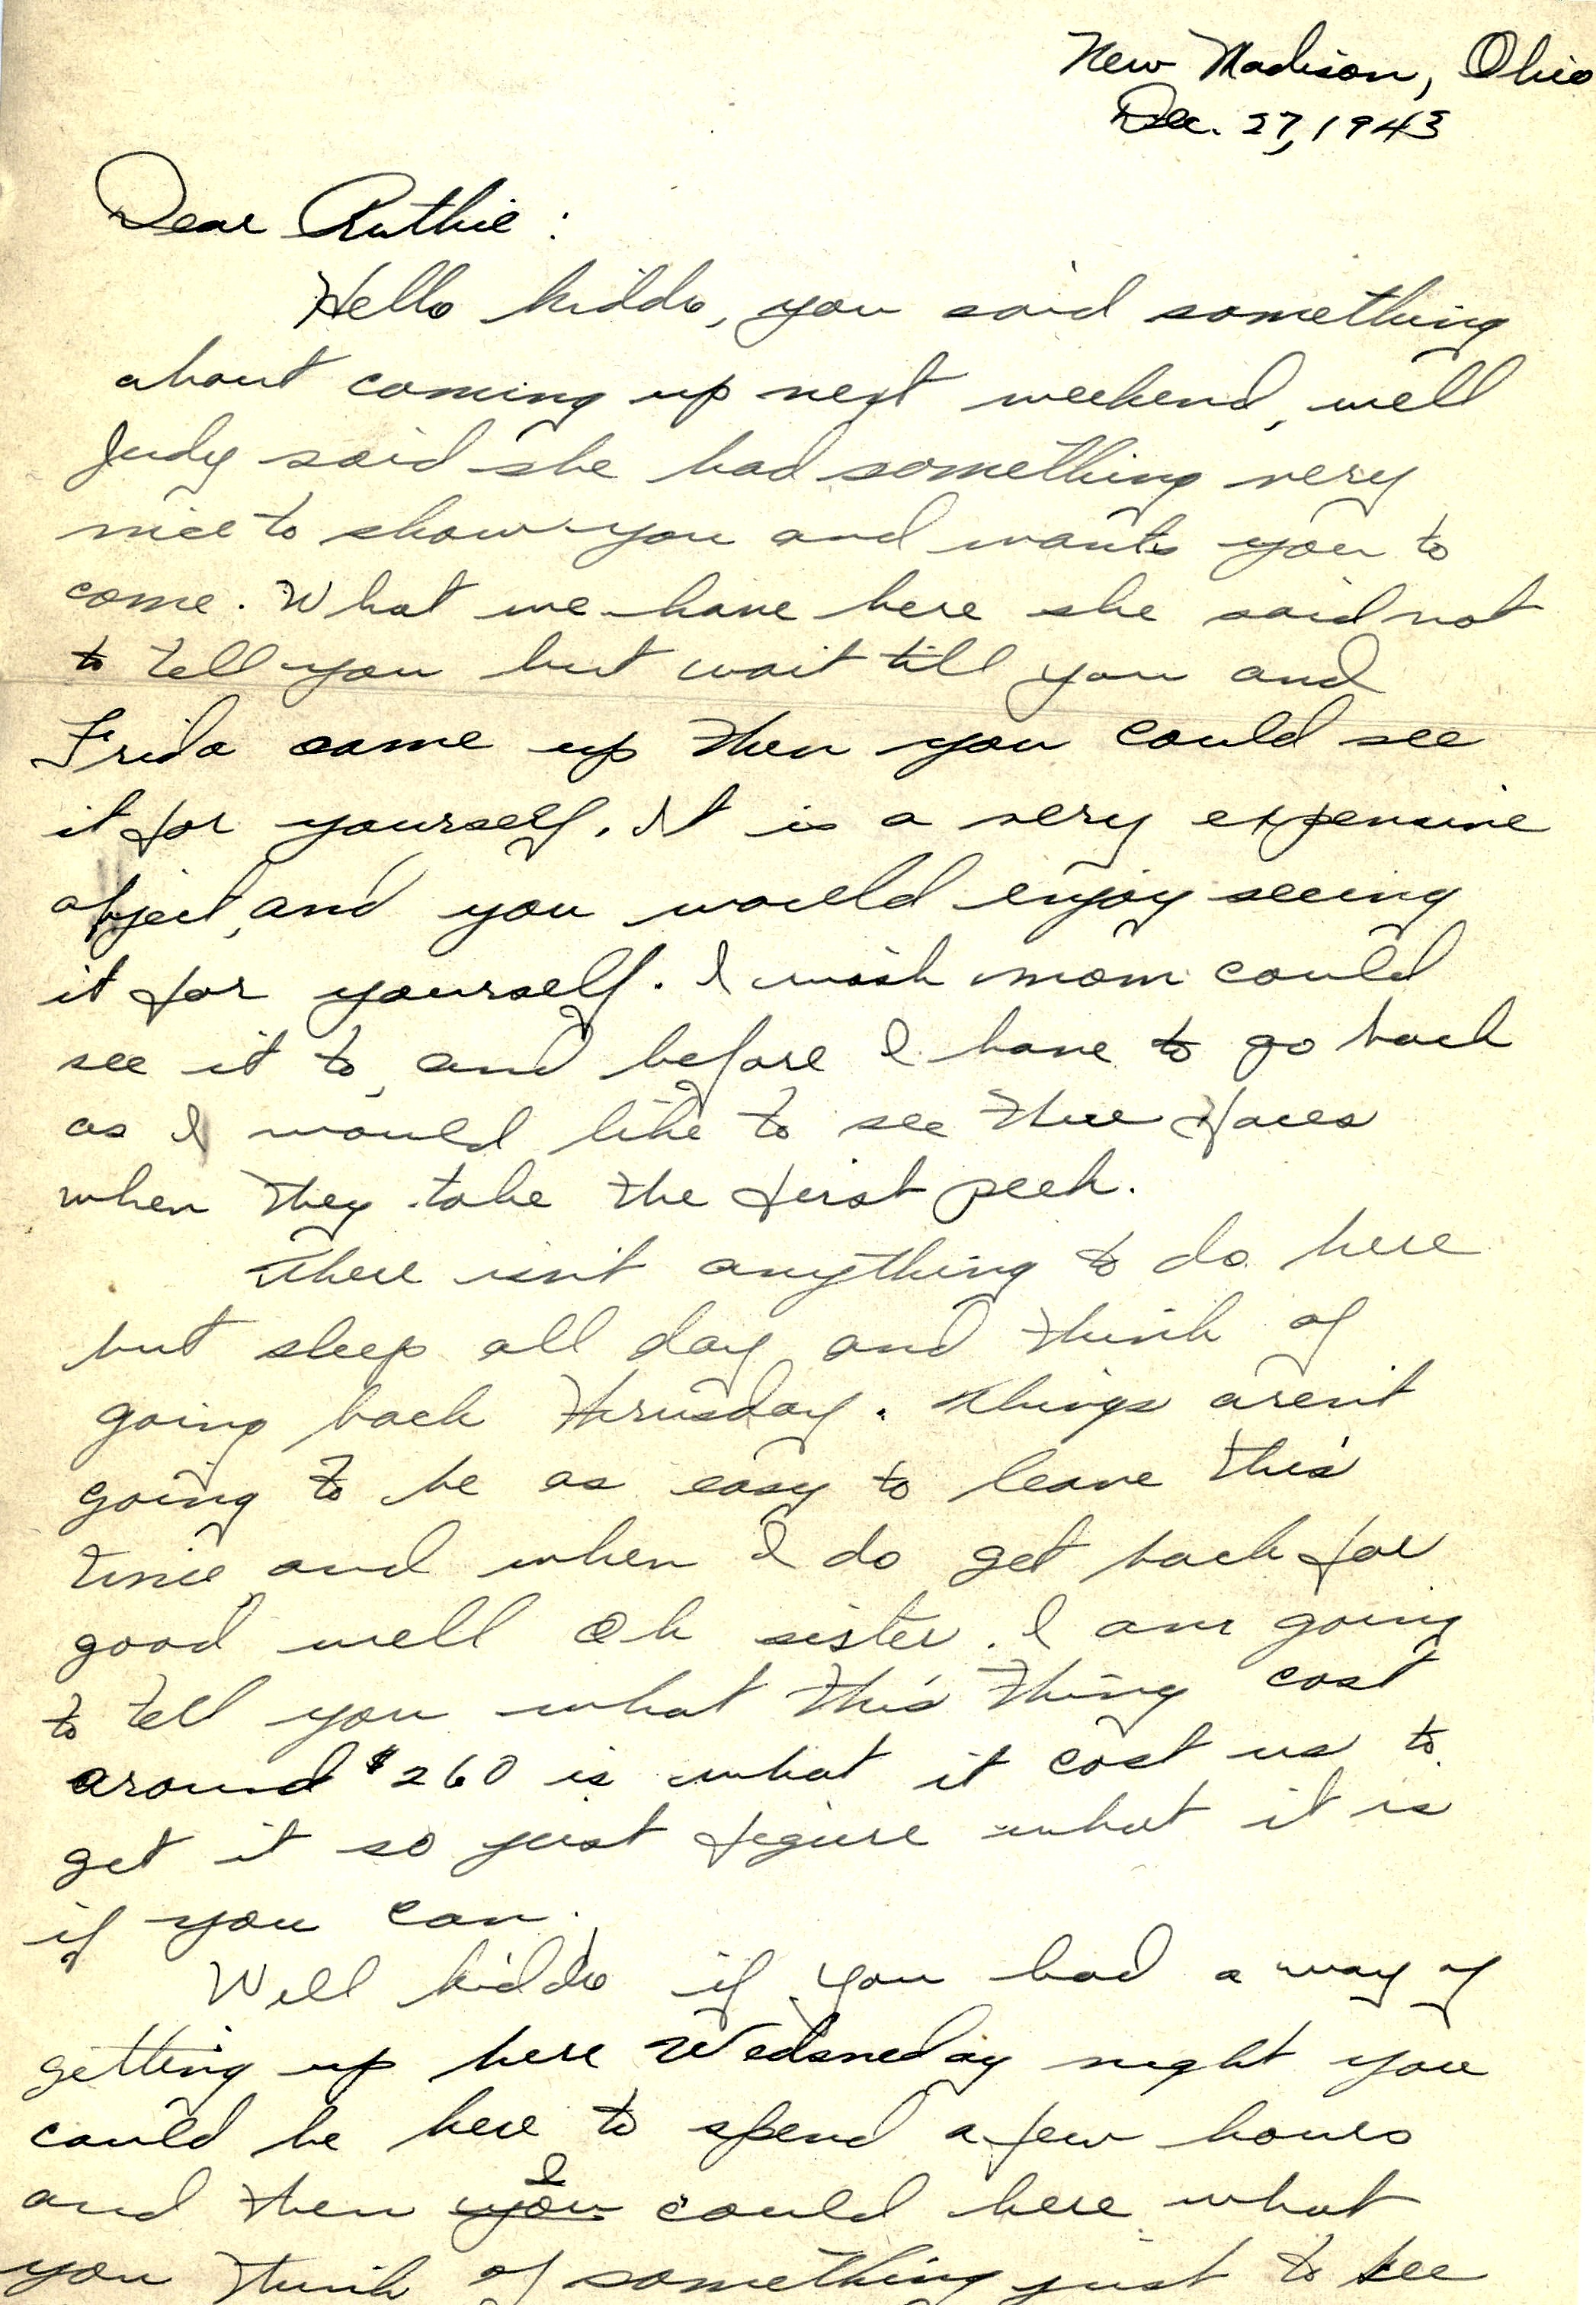 New Madison, Ohio
Dec. 27, 1943
Dear Ruthie:
Hello kiddo, you said something
about coming up next weekend, well
Judy said she had something very
nice to show you and wants you to
come. What we have here she said not
to tell you but wait till you and
Frida came up then you could see
it for yourself. It is a very expensive
object, and you would enjoy seeing
it for yourself. I wish mom could
see it to, and before I have to go back
as I would like to see thee faces
when they take the first peek.
There isn't anything to do here
but sleep all day and think of
going back Thrusday. Things aren't
going to be as easy to leave this
time and when I do get back for
good well Oh sister. I am going
to tell you what this thing cost
around $260 is what it cost us to
get it so just figure what it is
if you can.
Well kiddo if you had a way of
getting up here Wedsneday night you
could be here to spend a few hours
I
and then you could here what
you think of something just to see